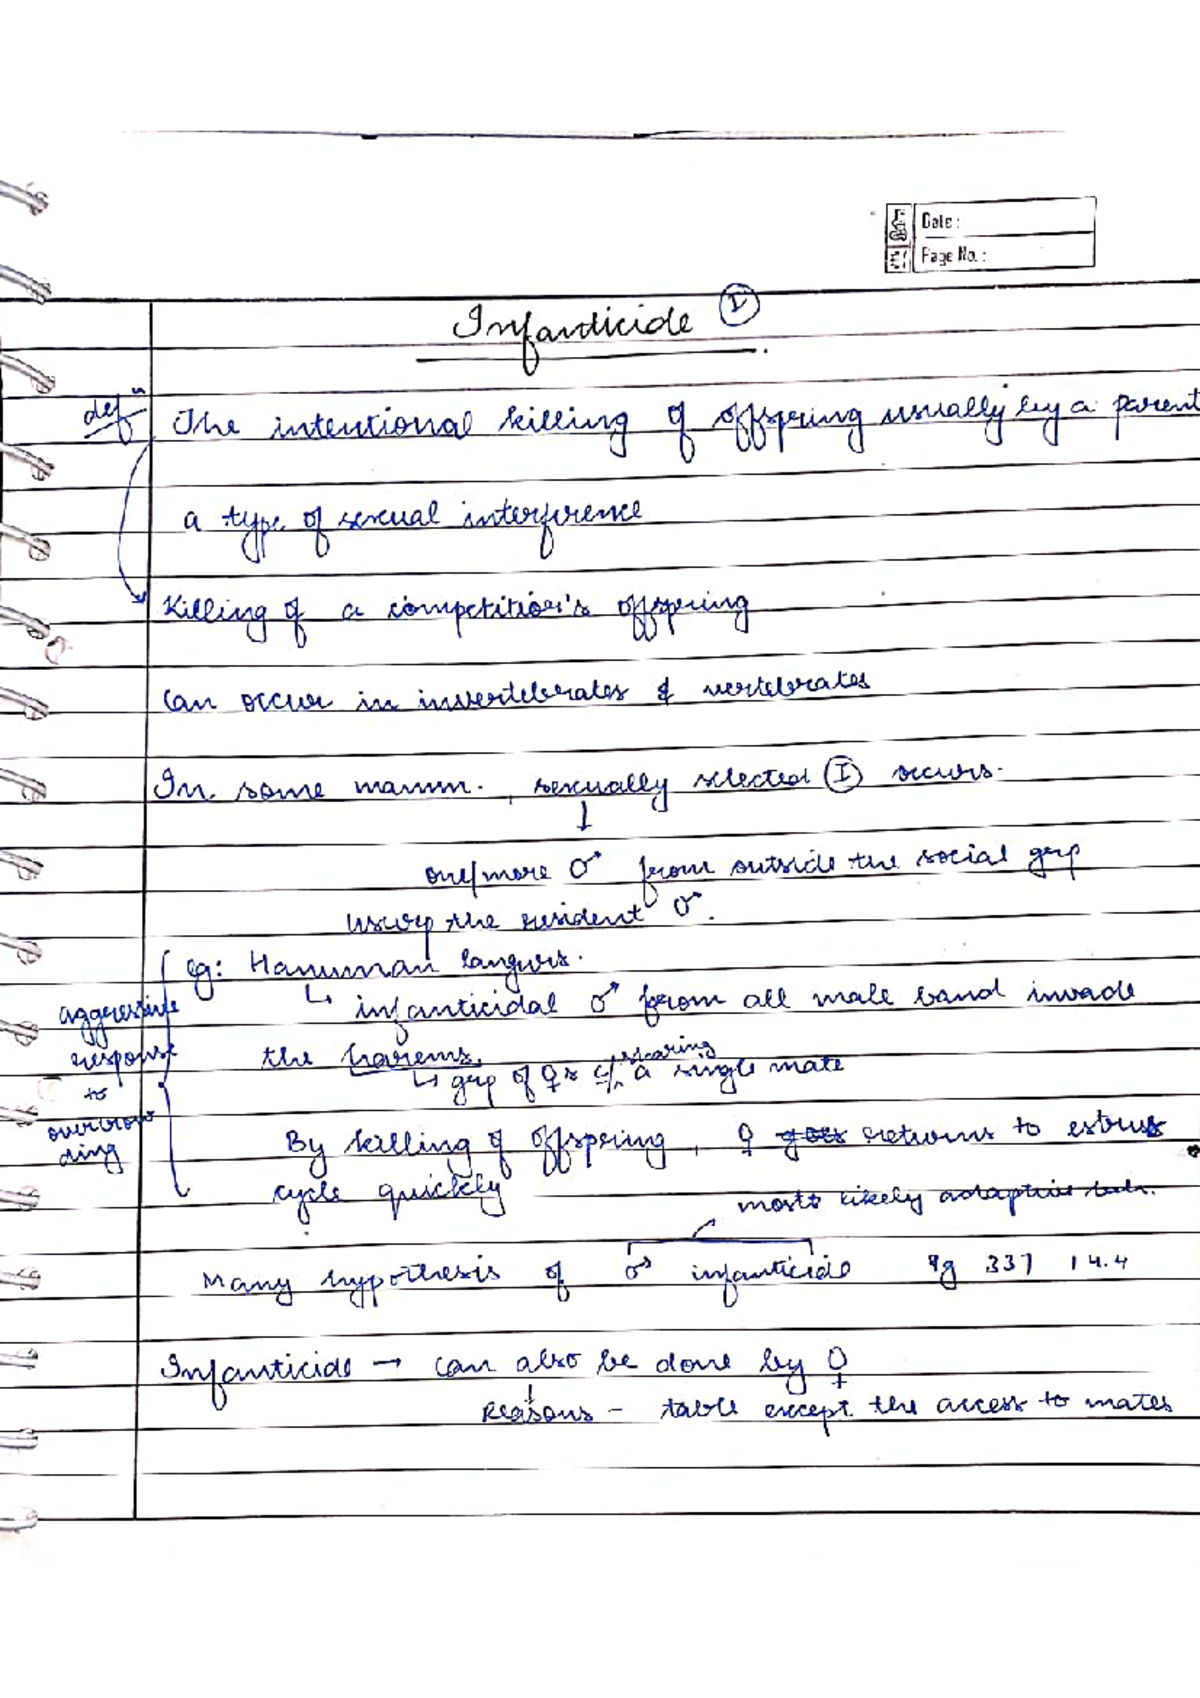 Date :
Page No. :
Infanticide Ⓘ
defⁿ The intentional killing of offspring usually by a parent
a type of sexual interference
Killing of a competitior's offspring
Can occur in invertebrates & vertebrates
In some mamm., sexually selected Ⓘ occurs.
↓
one/more ♂ from outside the social grp
usurp the resident ♂.
eg: Hanuman langurs.
↳ infanticidal ♂ from all male band invade
the harems.
↳ grp of ♀s sharing a single mate
aggressive
response
to
overcrow
ding
By killing of offspring, ♀ goes returns to estrus
cycle quickly
most likely adaptive beh.
Many hypothesis of ♂ infanticide Pg 337 14.4
Infanticide → can also be done by ♀
↓
Reasons - table except the access to mates